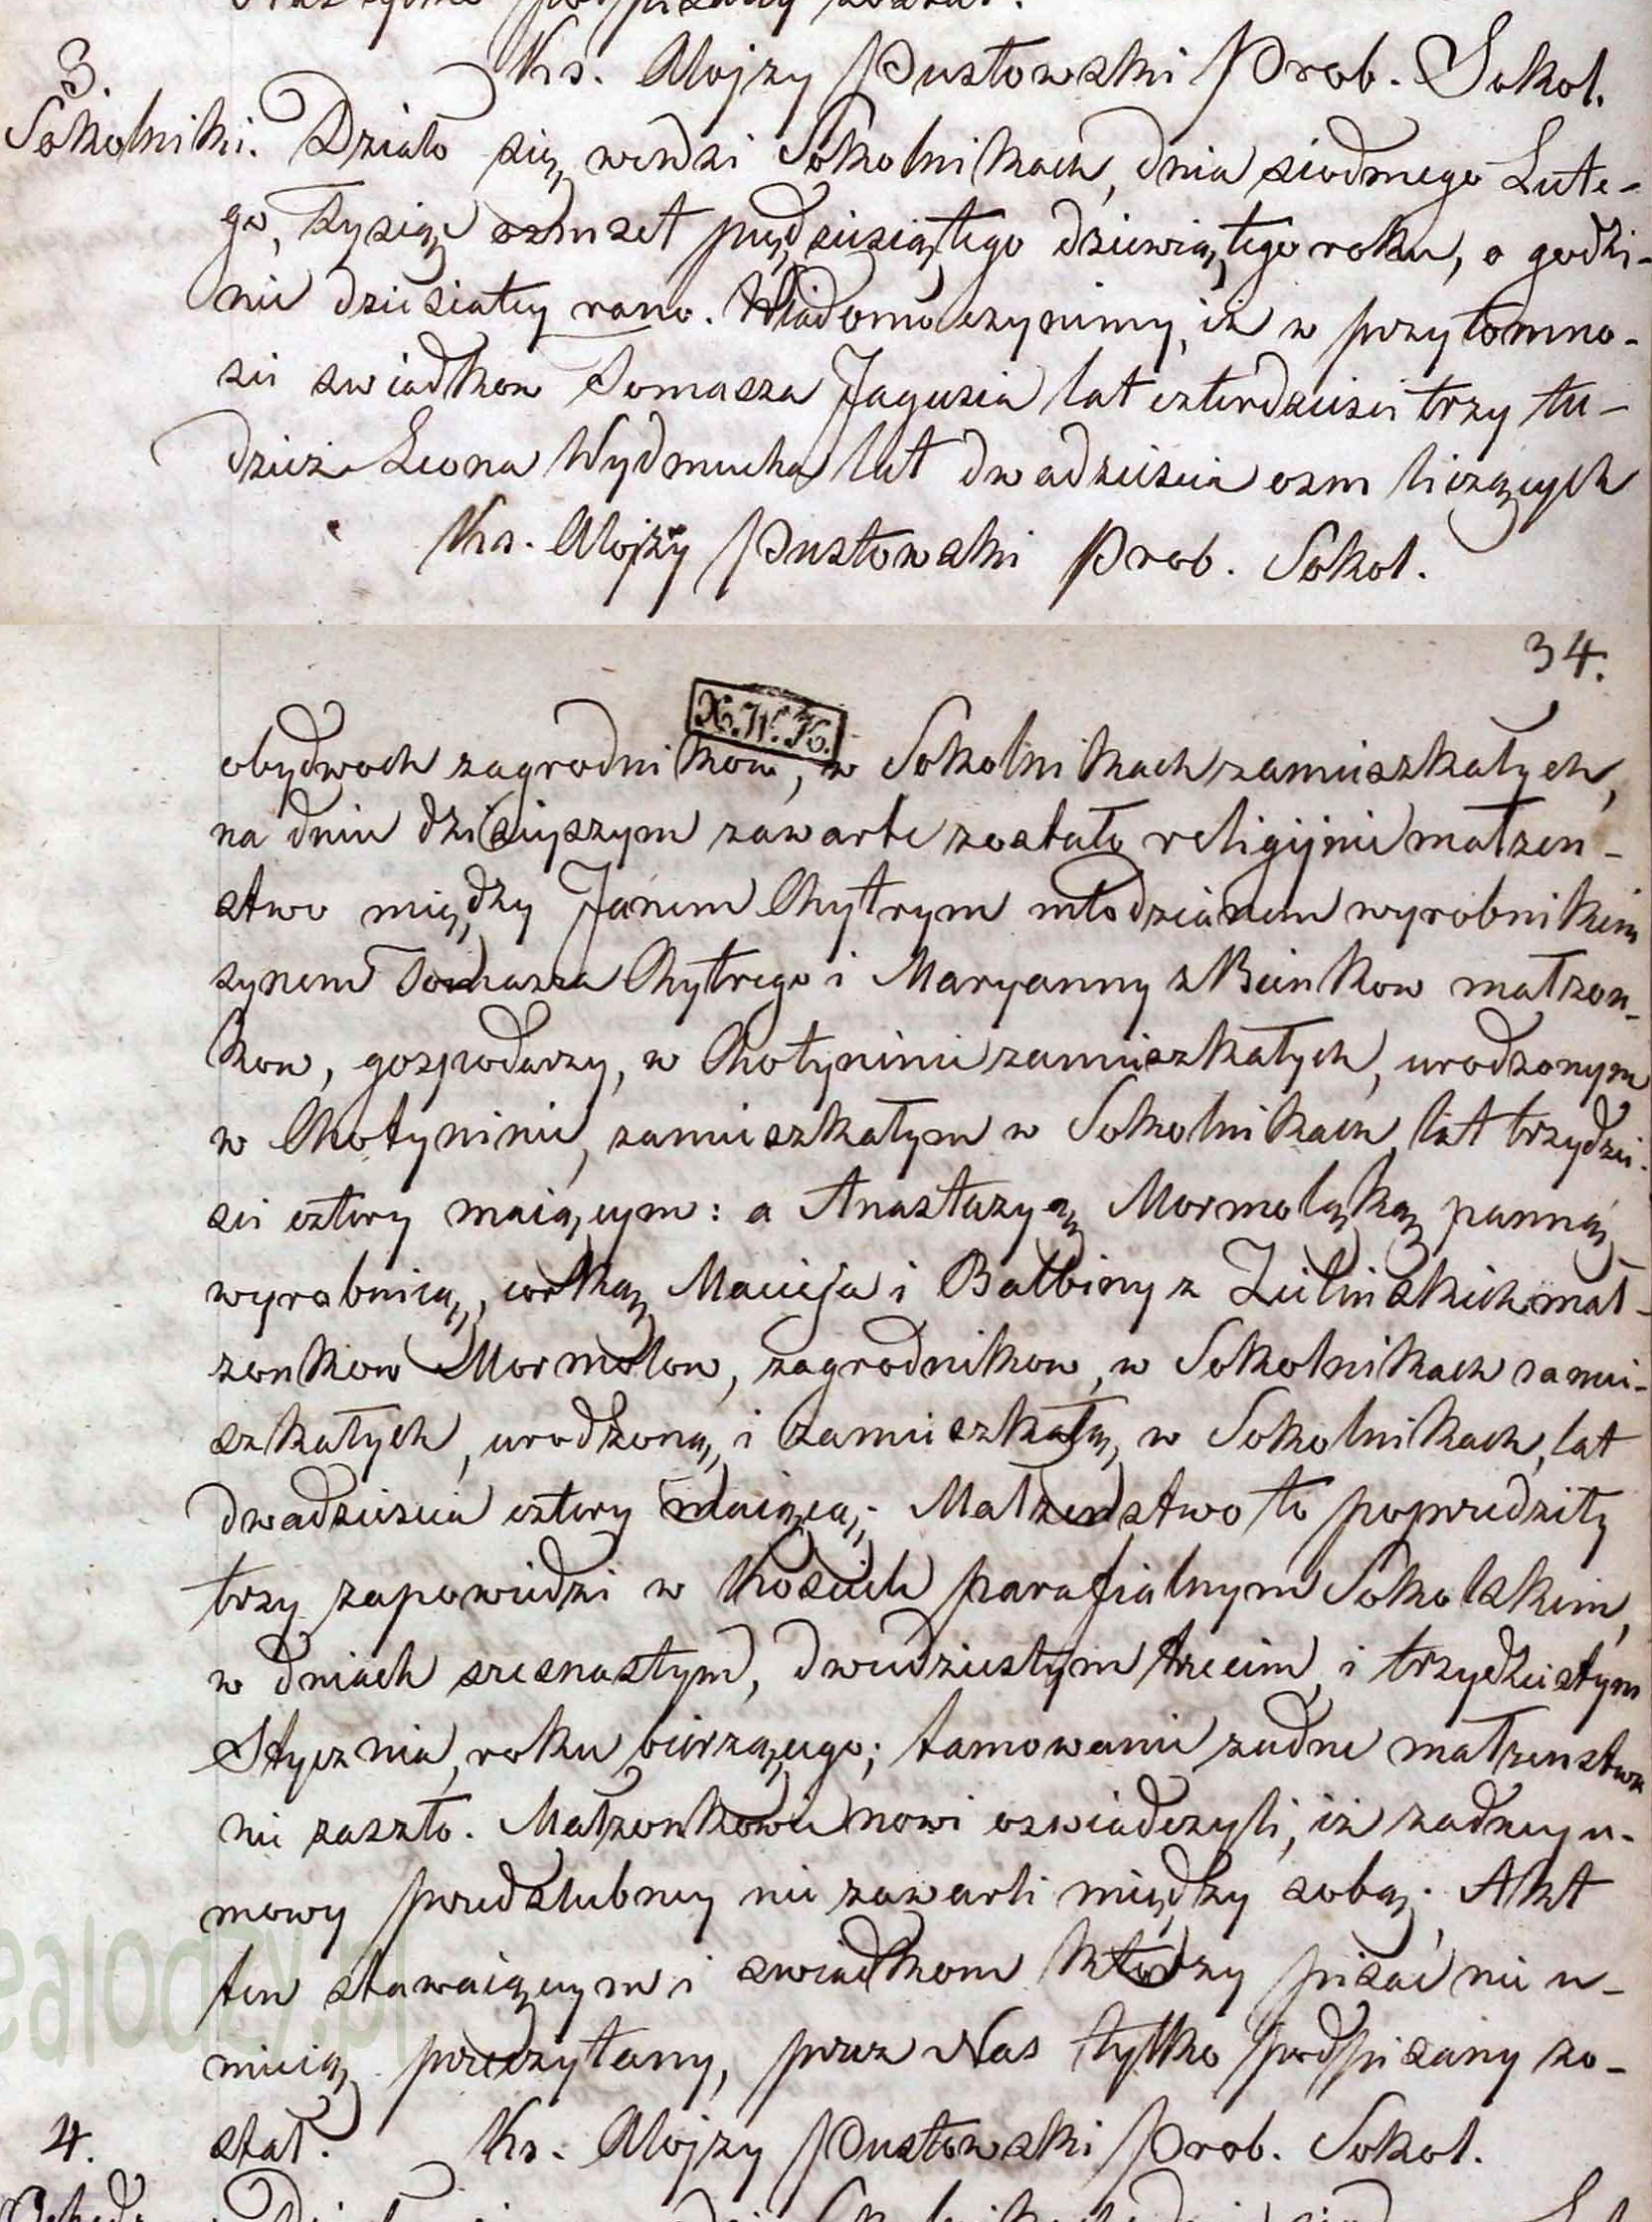 podpisany został.
Ks. Alojzy Pustowski Prob. Sokol.
3.
Sokolniki. Działo się wewsi Sokolnikach, dnia siodmego Lute-
go, tysiąc ośmset pięćdziesiątego dziewiątego roku, o godzi-
nie dziesiatey rano. Wiadomo czynimy, iż w przytomno-
sci swiadkow Tomasza Jagusia lat czterdziesci trzy tu-
dzież Leona Wydmucha lat dwadziescia osm liczących
Ks. Alojzy Pustowski Prob. Sokol.
34.
X.W.K.
obydwoch zagrodnikow, w Sokolnikach zamieszkałych,
na dniu dzisieyszym zawarte zostało religijnie małzen-
stwo między Janem Chytrym młodzianem wyrobnikiem
synem Tomasza Chytrego i Maryanny z Bienkow małzon-
kow, gospodarzy, w Chotyninie zamieszkałych, urodzonym
w Chotyninie, zamieszkałym w Sokolnikach, lat trzydzie-
sci cztery maiącym: a Anastazyą Mormoląką panną
wyrobnicą, corką Macieja i Balbiny z Zielinskich mał-
zonkow Mormolow, zagrodnikow, w Sokolnikach zamie-
szkałych, urodzoną i zamieszkałą w Sokolnikach, lat
dwadziescia cztery maiącą; Małzenstwo to poprzedziły
trzy zapowiedzi w Kosciele parafialnym Sokolskim,
w dniach szesnastym, dwudziestym trzecim i trzydziestym
Stycznia, roku bierzącego; tamowanie zadne małzenstwa
nie zaszło. Małzonkowie nowi oswiadczyli, iż zadney u-
mowy przedslubney nie zawarli między sobą; Akt
ten stawaiącym i swiadkom ktorzy pisać nie u-
mieią przeczytany, przez Nas tylko podpisany zo-
stał. Ks. Alojzy Pustowski Prob. Sokol.
4.
ealodzy.pl